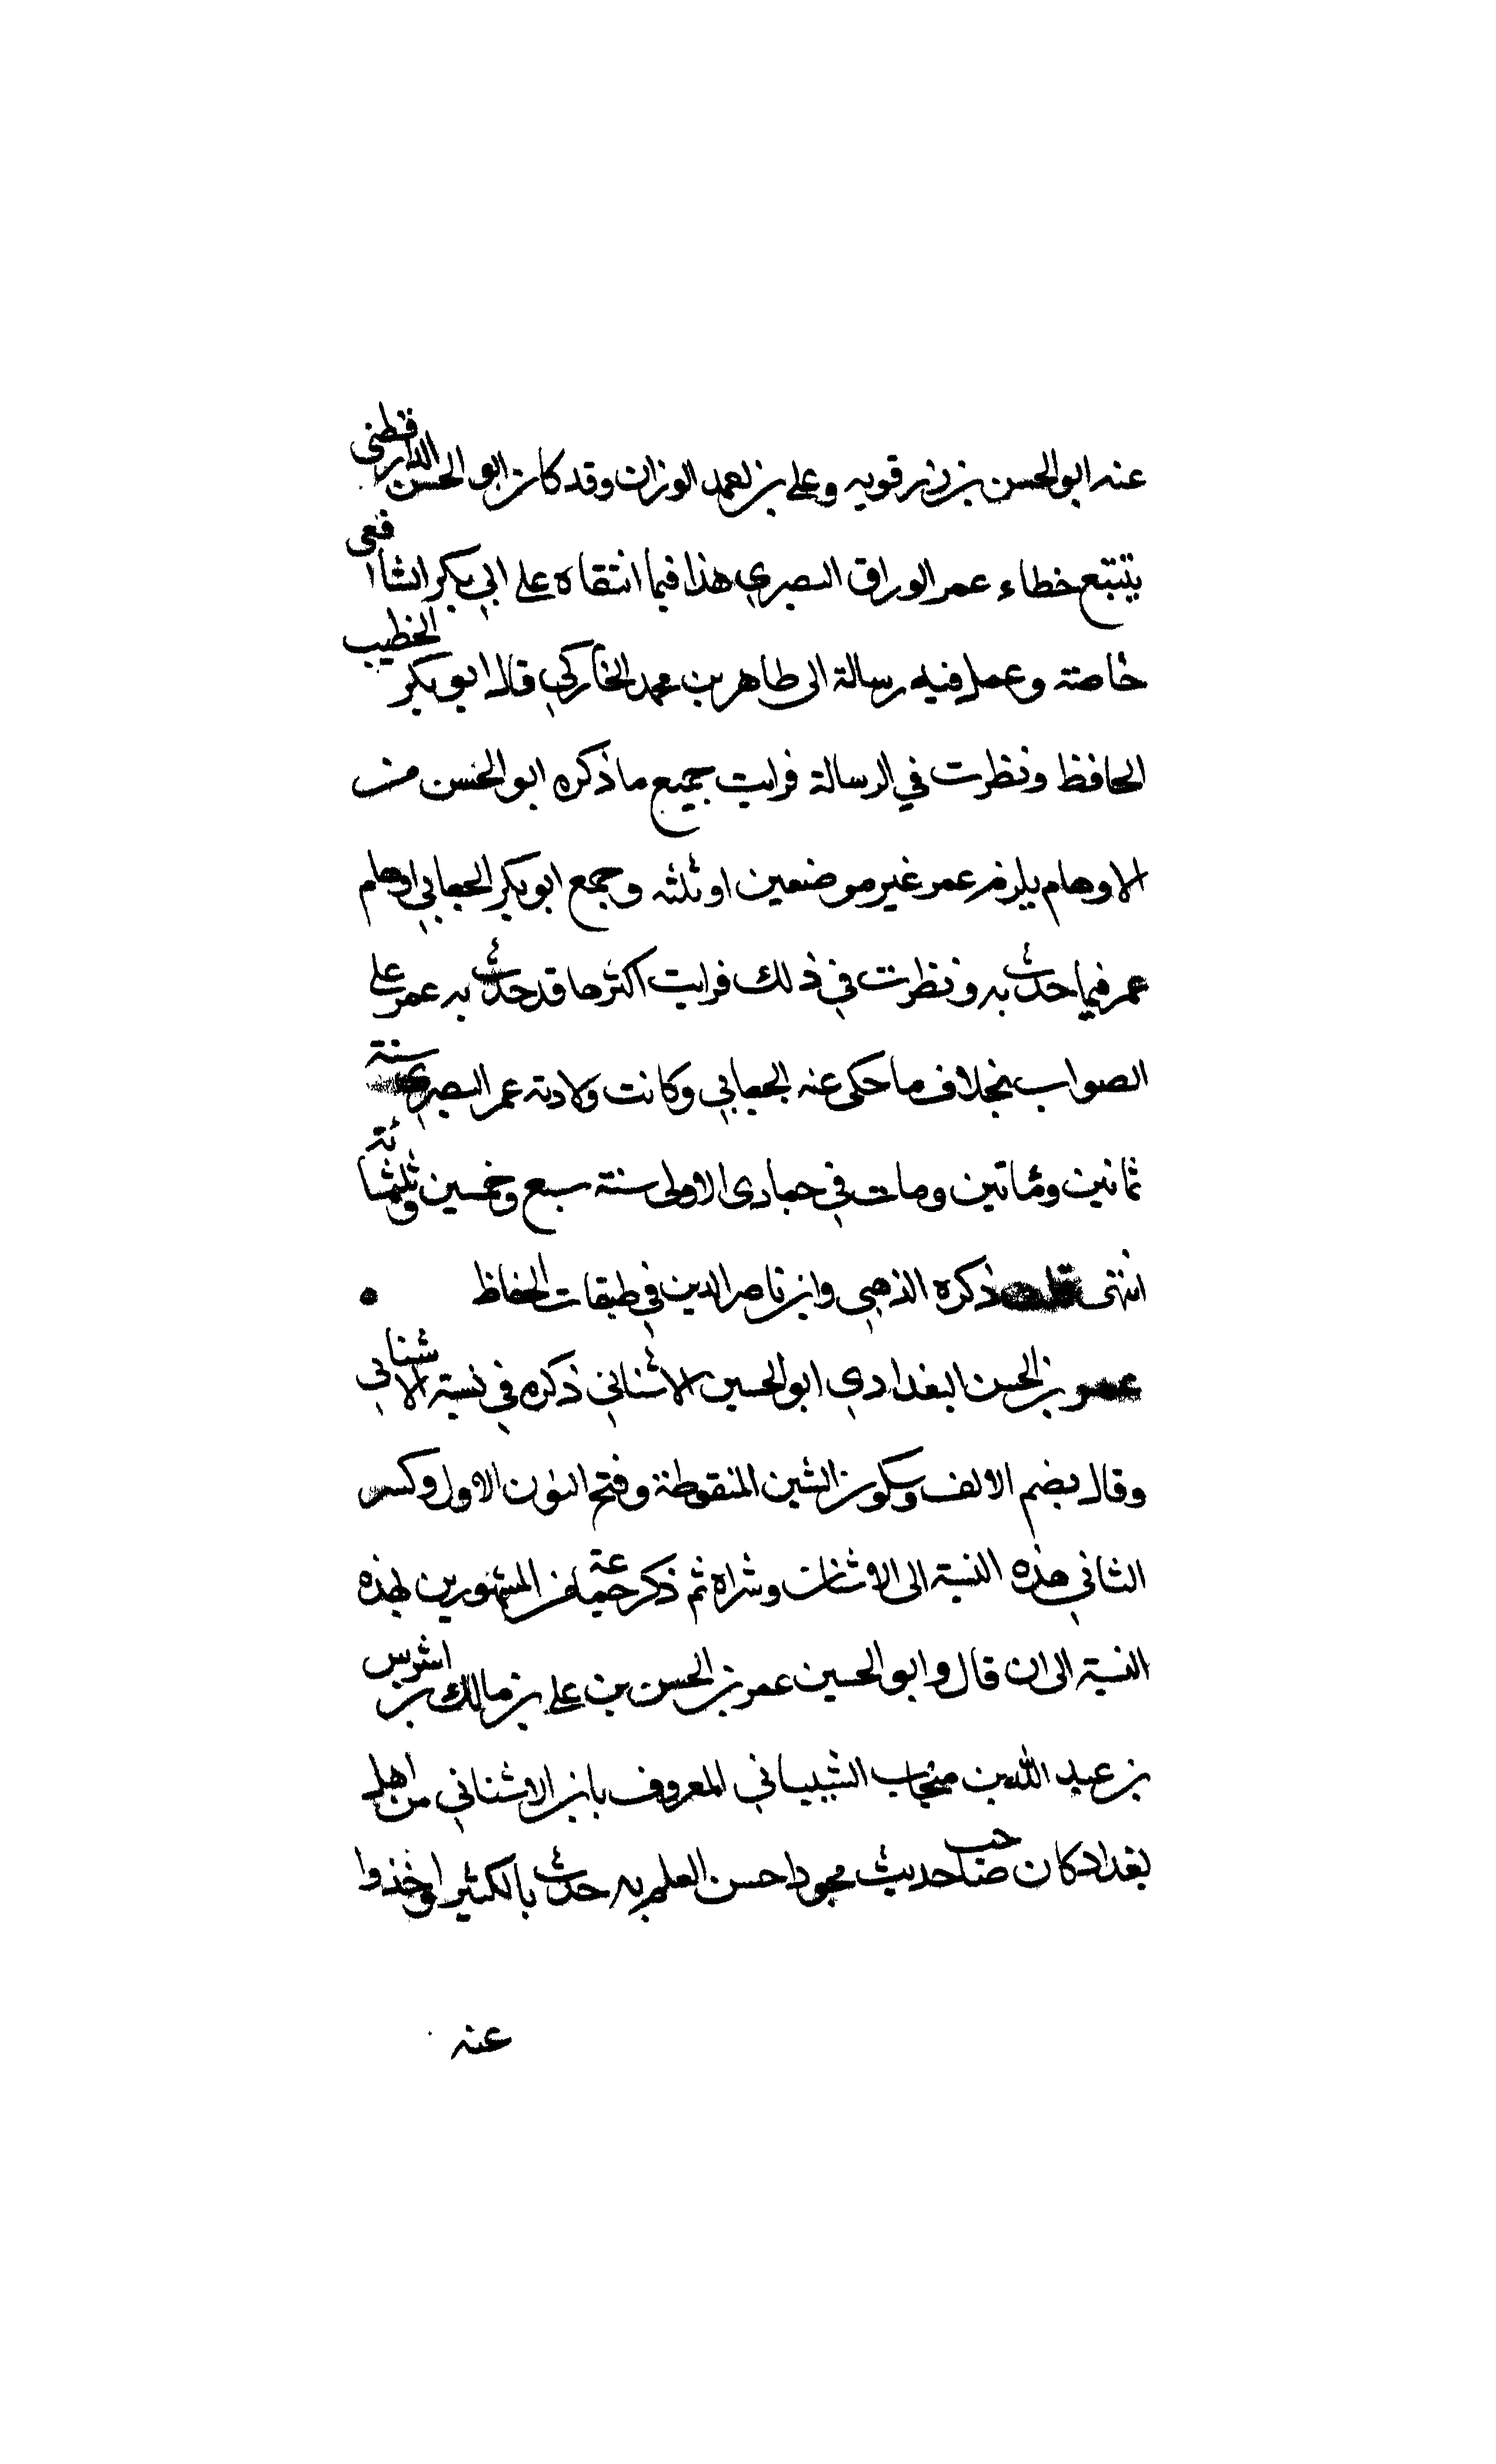 عنه ابو الحسن بن رزقويه وعلي بن احمد الوزان وقد كان ابو الحسن الدارقطنى
يتتبع خطاء عمر الوراق البصري هذا فيما انتقاه على ابي بكر الشافعى
خاصة وعمل فيه رسالة الى طاهر بن محمد الخاركي قال ابو بكر الخطيب
الحافظ ونظرت في الرسالة فرايت جميع ما ذكره ابو الحسن من
الاوهام يلزم عمر غير موضعين او ثلثه وجمع ابو بكر الجعابي اوهام
عمر فيما حدث به ونظرت في ذلك فرايت اكثرها قد حدث به عمر على
الصواب بخلاف ما حكى عنه الجعابي وكانت ولادته عمر البصري سنة
ثمانين ومأتين ومات في جمادى الاولى سنة سبع وخمسين وثلثمائة
انتهى قلت ذكره الذهبي وابن ناصر الدين في طبقات الحفاظ
عمر بن الحسن البغدادي ابو الحسين الاشناني ذكره في نسبة الاشناني
وقال بضم الالف وسكون الشين المنقوطة وفتح النون الاول وكسر
الثاني هذه النسبة الى الاشنان وشراه ثم ذكر جماعة من المشهورين بهذه
النسبة الى ان قال وابو الحسين عمر بن الحسن بن علي بن مالك بن اشرس
بن عبد الله بن منجاب الشيباني المعروف بابن الاشناني من اهل
بغداد كان صاحب حديث مجودا حسن العلم به حدث بالكثير واخذوا
عنه